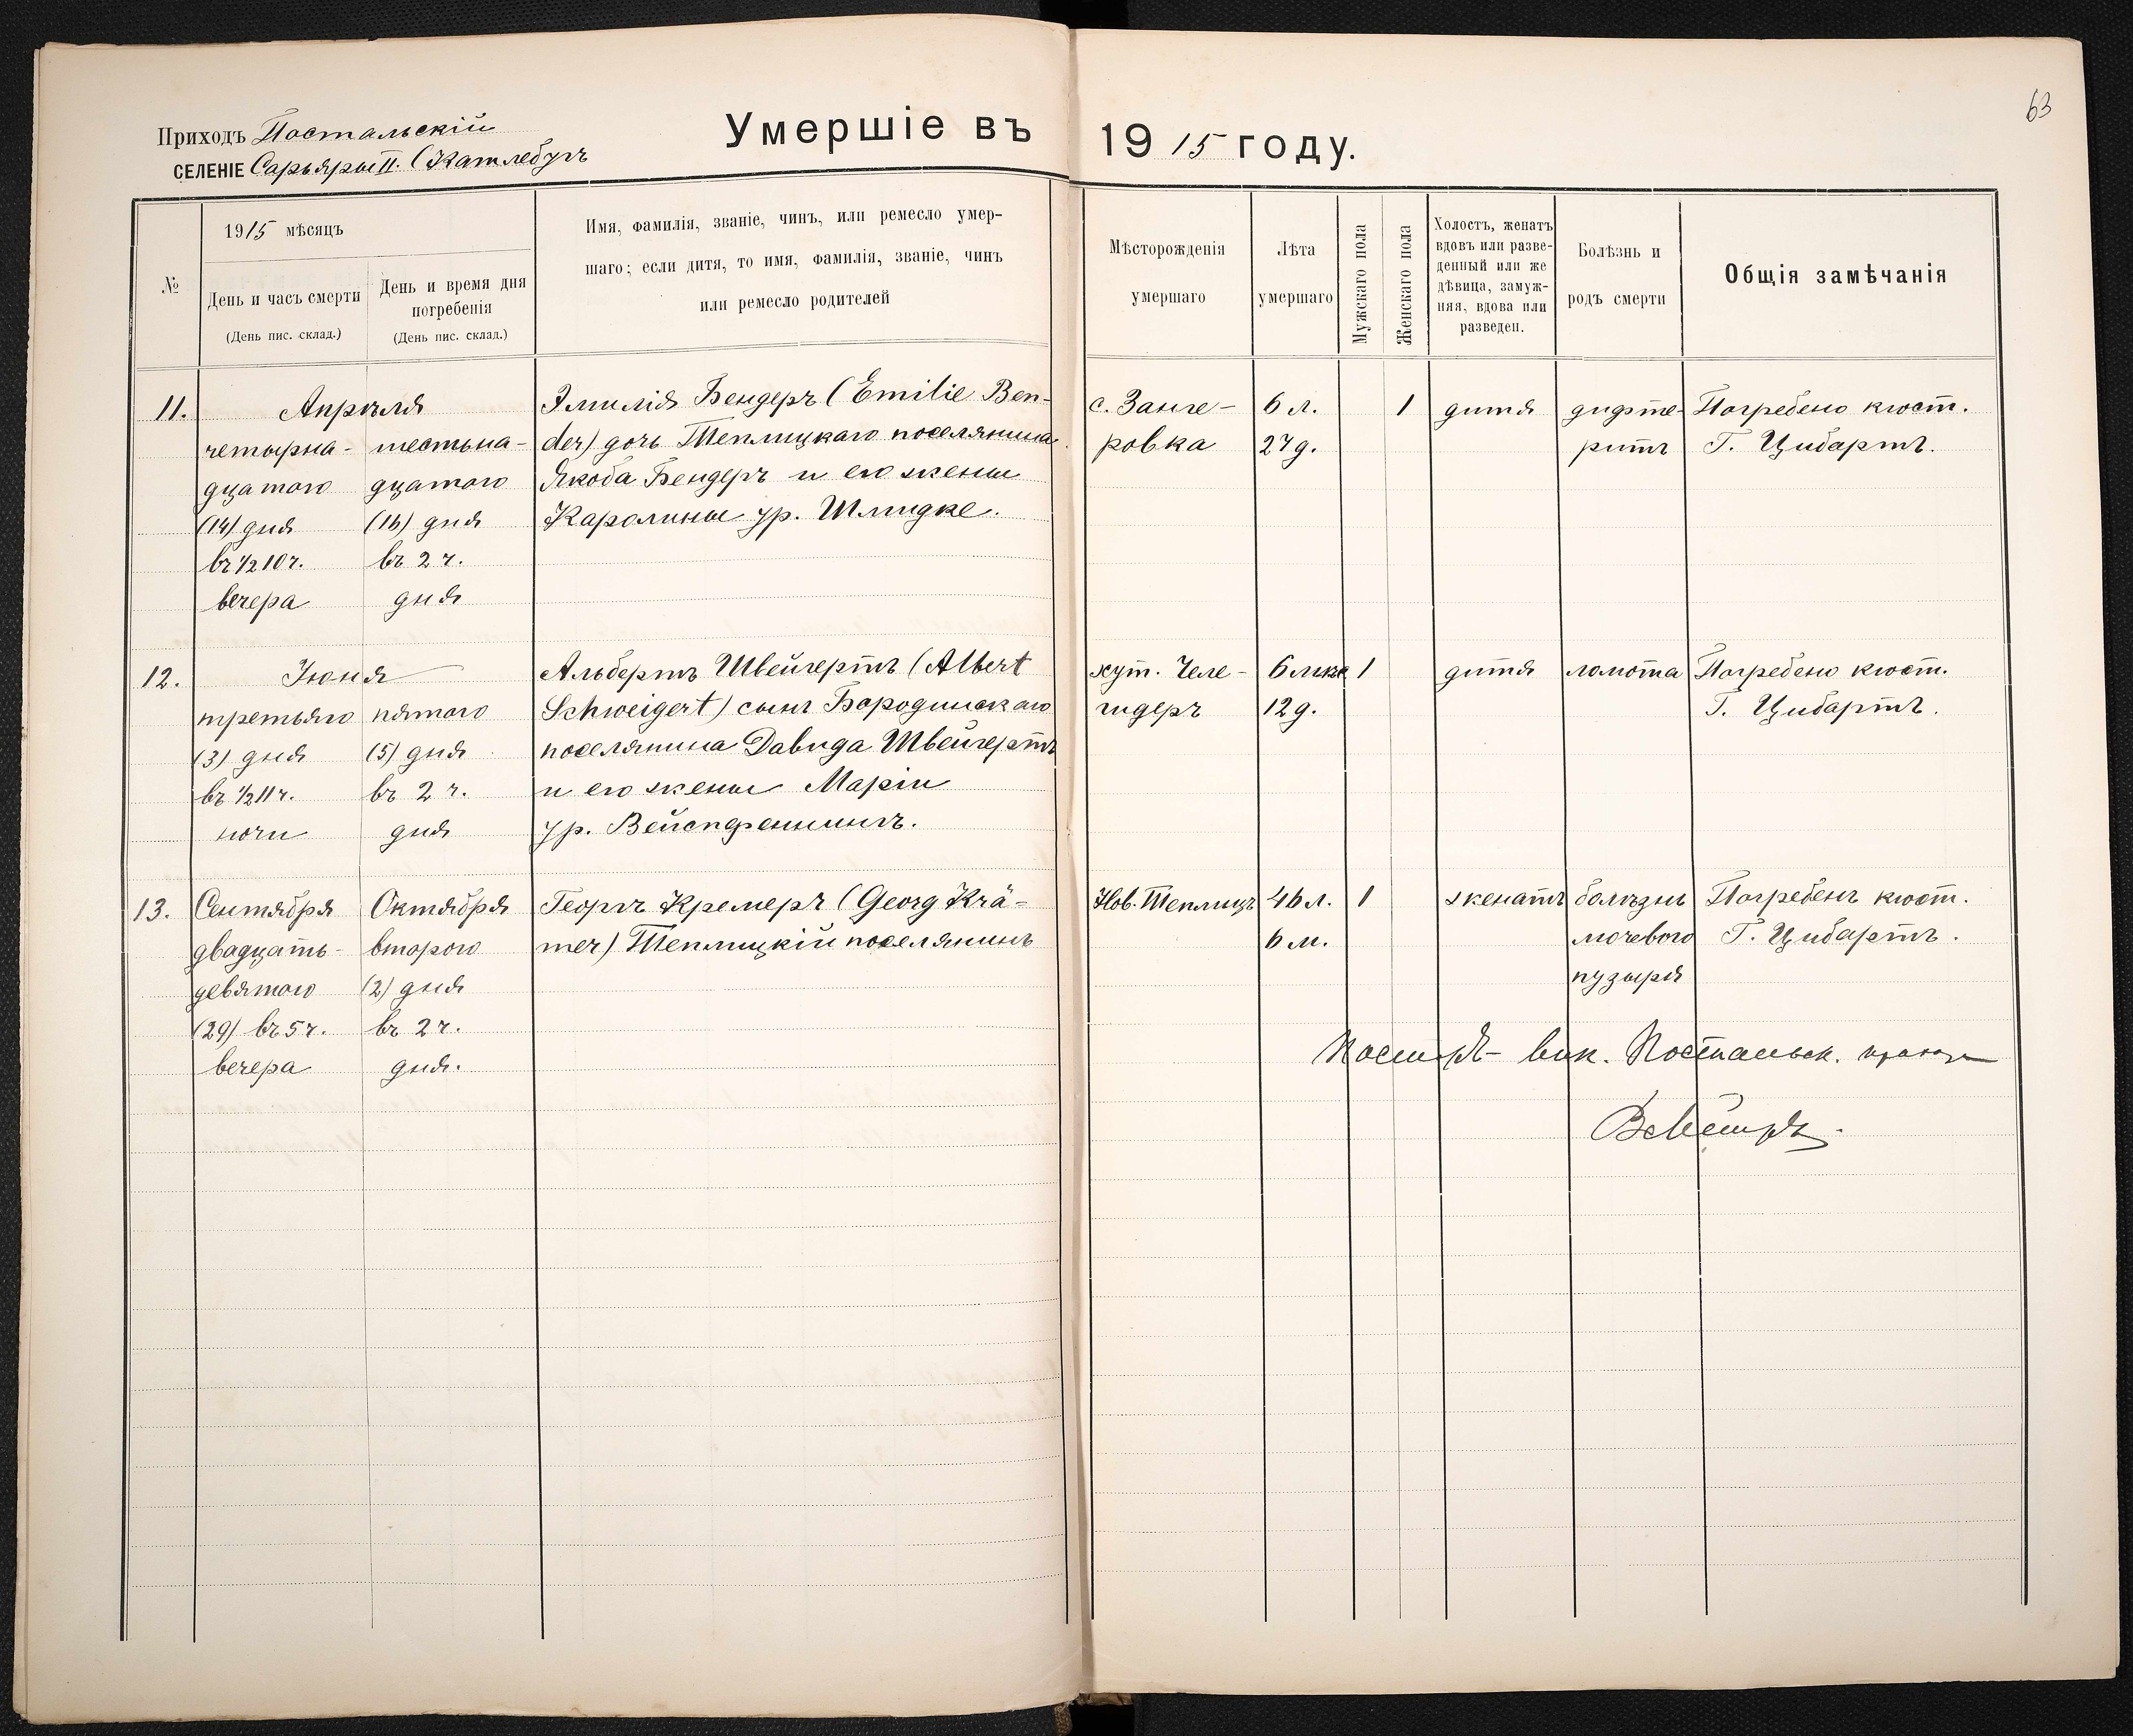 63
Приходъ Постальскій
СЕЛЕНІЕ Сарьяры II. (Катлебугъ
Умершіе въ 1915 году.
№
1915 мѣсяцъ
День и часъ смерти
(День пис. склад.)
День и время дня
погребенія
(День пис. склад.)
Имя, фамилія, званіе, чинъ, или ремесло умер-
шаго; если дитя, то имя, фамилія, званіе, чинъ
или ремесло родителей
Мѣсторожденія
умершаго
Лѣта
умершаго
Мужскаго пола
Женскаго пола
Холостъ, женатъ
вдовъ или разве-
денный или же
дѣвица, замуж-
няя, вдова или
разведен.
Болѣзнь и
родъ смерти
Общія замѣчанія
11.
Апрѣля
четырна-
дцатого
(14) дня
въ ½10ч.
вечера
шестьна-
дцатого
(16) дня
въ 2 ч.
дня
Эмилія Бендеръ (Emilie Ben-
der) дочь Теплицкаго поселянина
Якоба Бендеръ и его жены
Каролины ур. Шлидке.
с. Занге-
ровка
6 л.
27д.
1
дитя
дифте-
ритъ
Погребено кюст.
Г. Цибартъ.
12.
Іюня
третьяго
(3) дня
въ ½11ч.
ночи
пятого
(5) дня
въ 2 ч.
дня
Альбертъ Швейгертъ (Albert
Schweigert) сынъ Бородинскаго
поселянина Давида Швейгертъ
и его жены Маріи
ур. Вейспфеннингъ.
хут. Челе-
гидеръ
12д.
1
дитя
ломота
Погребено кюст.
Г. Цибартъ.
13.
Сентября
двадцать-
девятого
(29) въ 5ч.
вечера
Октября
второго
(2) дня
въ 2ч.
дня.
Георгъ Кремеръ (Georg Krä-
mer) Теплицкій поселянинъ
Нов. Теплицъ
46 л.
6 м.
1
женатъ
болѣзнь
мочевого
пузыря
Погребенъ кюст.
Г. Цибартъ.
Пасторъ- вик. Постальск. прихода